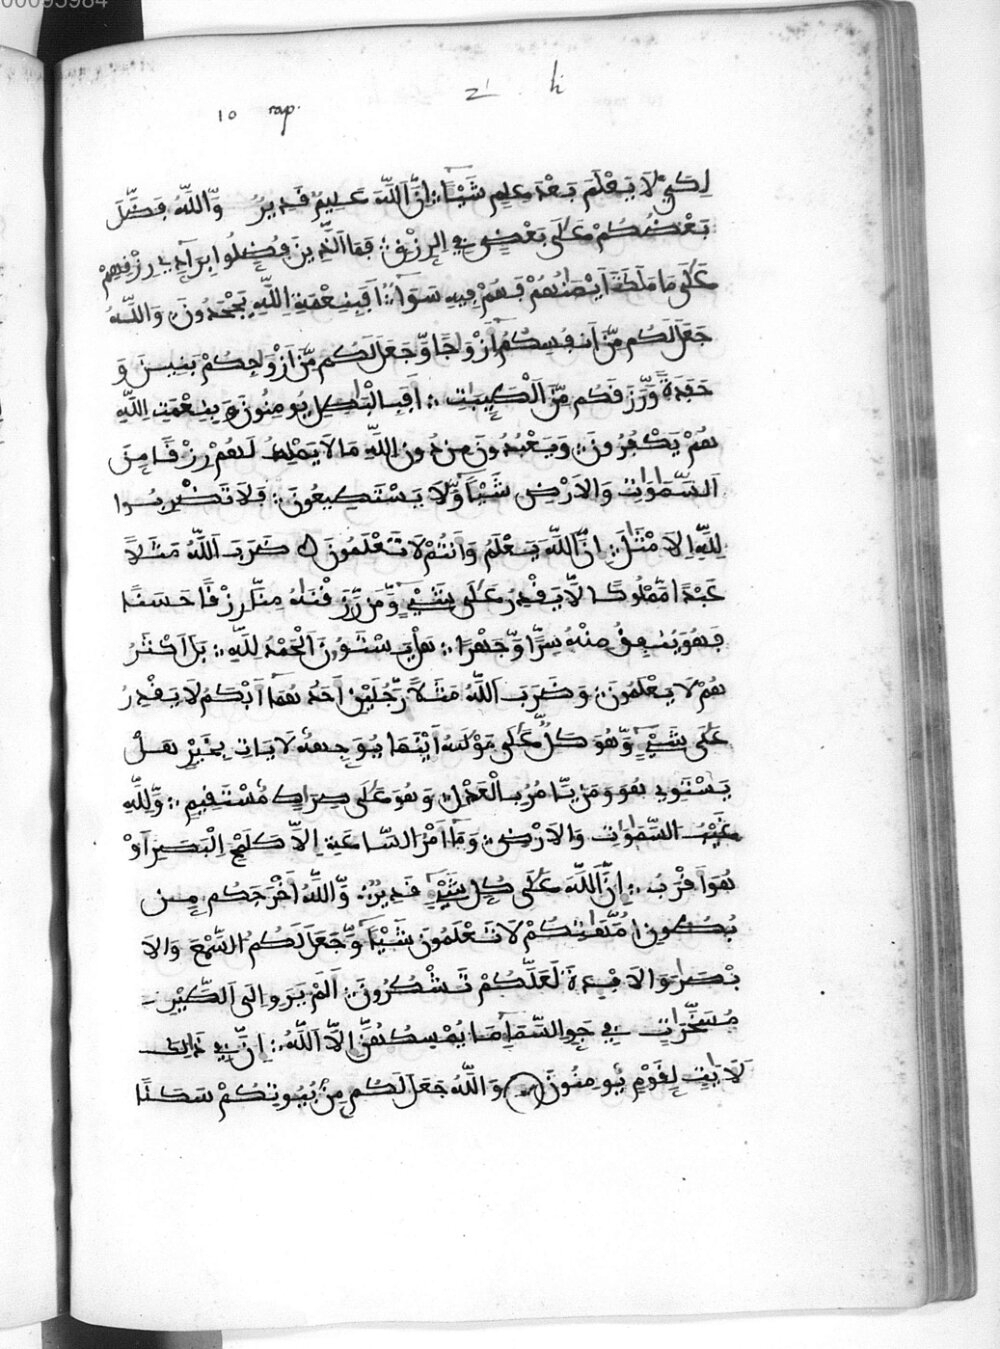 00095984
10 rap.
لِكَيْ لَا يَعْلَمَ بَعْدَ عِلْمٍ شَيْـًٔا ؞ اِنَّ اَللَّهَ عَلِيمٌ فَدِيرٌ وَّاللَّهُ بَضَّلَ
بَعْضَكُمْ عَلَىٰ بَعْضٍ بِے اِلرِّزْقِ ؞ بَمَا اَلذِينَ بُضِّلُوا بِرَآدِّے رِزْفِهِمْ
عَلَىٰ مَا مَلَكَتَ اَيْمَٰنُهُمْ بَهُمْ بِيهِ سَوَآءٌ ؞ اَبَبِنِعْمَةِ اِللَّهِ يَجْحَدُونَ وَاللَّهُ
جَعَلَ لَكُم مِّنَ اَنبُسِكُمُ أَزْوَٰجًا وَّجَعَلَ لَكُم مِّنَ اَزْوَٰجِكُمْ بَنِينَ وَ
حَبَدَةً وَّرَزَفَكُم مِّنَ اَلطَّيِّبَٰتِ ؞ اَبَبِالْبَٰطِلِ يُومِنُونَ وَبِنِعْمَتِ اِللَّهِ
هُمْ يَكْبُرُونَ ؞ وَيَعْبُدُونَ مِن دُونِ اِللَّهِ مَا لَا يَمْلِكُ لَهُمْ رِزْفًا مِنَ
اَلسَّمَٰوَٰتِ وَالاَرْضِ شَيْـًٔا وَّلَا يَسْتَطِيعُونَ ؞ بَلَا تَضْرِبُوا
لِلَّهِ اِلاَمْثَالَ ؞ اِنَّ اَللَّهَ يَعْلَمُ وَأَنتُمْ لَا تَعْلَمُونَ ضَرَبَ اَللَّهُ مَثَلًا
عَبْدًا مَّمْلُوكًا لَّا يَفْدِرُ عَلَىٰ شَےْءٍ وَّمَن رَّزَفْنَٰهُ مِنَّا رِزْفًا حَسَنًا
بَهُوَ يُنبِقُ مِنْهُ سِرًّا وَّجَهْرًا ؞ هَلْ يَسْتَوُۥنَ اَلْحَمْدُ لِلَّهِ ؞ بَلَ اَكْثَرُ
هُمْ لَا يَعْلَمُونَ ؞ وَضَرَبَ اَللَّهُ مَثَلًا رَّجُلَيْنِ أَحَدُهُمَا أَبْكَمُ لَا يَفْدِرُ
عَلَىٰ شَےْءٍ وَّهُوَ كَلٌّ عَلَىٰ مَوْلَىٰهُ أَيْنَمَا يُوَجِّههُّ لَا يَاتِ بِخَيْرٍ هَلْ
يَسْتَوِے هُوَ وَمَنْ يَّامُرُ بِالْعَدْلِ وَهُوَ عَلَىٰ صِرَٰطٍ مُّسْتَفِيمٍ ؞ وَّلِلَّهِ
غَيْبُ السَّمَٰوَٰتِ وَالاَرْضِ ؞ وَمَآ أَمْرُ السَّاعَةِ اِلَّا كَلَمْحِ اِلْبَصَرِ أَوْ
هُوَ أَفْرَبُ ؞ اِنَّ اَللَّهَ عَلَىٰ كُلِّ شَےْءٍ فَدِيرٌ ؞ وَّاللَّهُ أَخْرَجَكُم مِن
بُطُونِ أُمَّهَٰتِكُمْ لَا تَعْلَمُونَ شَيْـًٔا وَّجَعَلَ لَكُمُ السَّمْعَ وَالاَ
بْصَٰرَ وَالاَبْـِٕدَةَ لَعَلَّكُمْ تَشْكُرُونَ ؞ أَلَمْ يَرَوِا اِلَى اَلطَّيْرِ
مُسَخَّرَٰتٍ بِے جَوِّ السَّمَآءِ مَا يُمْسِكُهُنَّ إِلَّا اَللَّهُ ؞ اِنَّ بِے ذَٰلِكَ
لَأَيَٰتٍ لِفَوْمٍ يُومِنُونَ وَاللَّهُ جَعَلَ لَكُم مِنۢ بُيُوتِكُمْ سَكَنًا